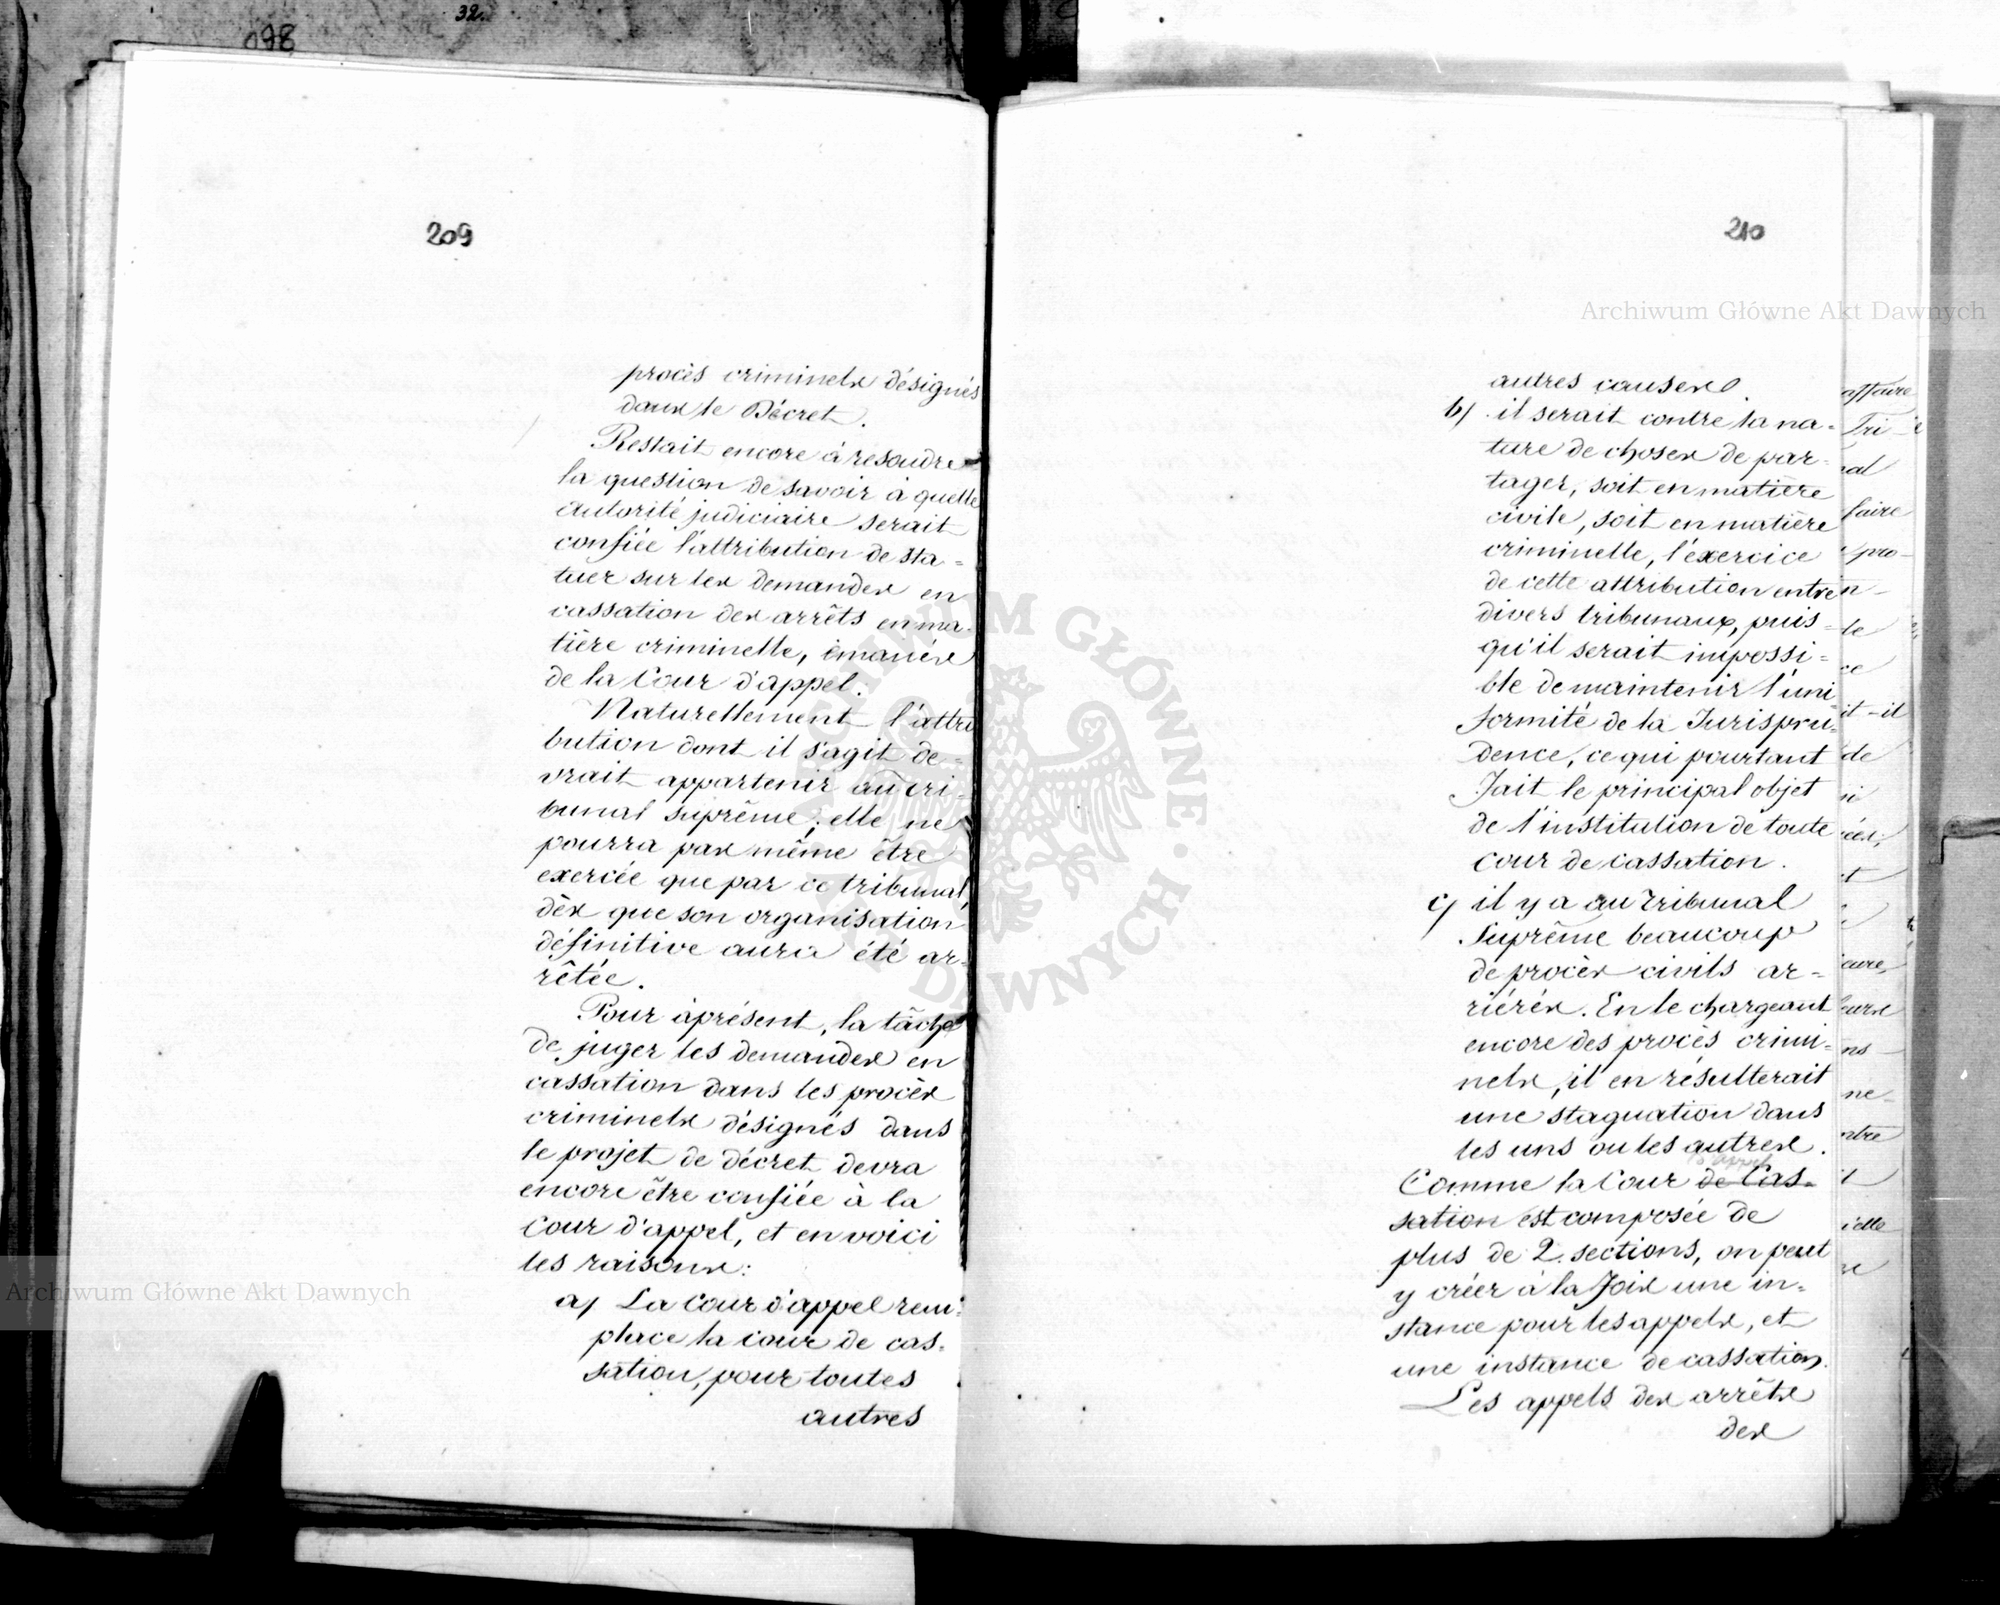 098
32.
209
procès criminels désignés
dans le Décret.
Restait encore à resoudre
la question de savoir à quelle
autorité judiciaire serait
confiée l'attribution de sta=
tuer sur les demandes en
cassation des arrêts en ma=
tière criminelle, émanés
de la Cour d'appel.
Naturellement l'attri
bution dont il s'agit de=
vrait appartenir au tri=
bunal suprême; elle ne
pourra pas même être
exercée que par ce tribunal,
dès que son organisation
définitive aura été ar=
rêtée.
Pour àprésent, la tâche
de juger les demandes en
cassation dans les procès
criminels désignés dans
le projet de décret devra
encore être confiée à la
Cour d'appel, et en voici
les raisons:
a) La Cour d'appel rem=
place la cour de cas=
sation, pour toutes
autres
210
autres causes.
b) il serait contre la na=
ture de choses de par=
tager, soit en matière
civile, soit en matière
criminelle, l'exercice
de cette attribution entre
divers tribunaux, puis=
qu'il serait impossi=
ble de maintenir l'uni
formité de la Jurispru=
dence, ce qui pourtant
fait le principal objet
de l'institution de toute
cour de cassation.
c) il y a au Tribunal
Suprême beaucoup
de procès civils ar=
riérés. En le chargeant
encore des procès crimi=
nels, il en résulterait
une stagnation dans
les uns ou les autres.
d'appel
Comme la Cour de Cas=
sation est composée de
plus de 2 sections, on peut
y créer à la fois une in=
stance pour les appels, et
une instance de cassation.
Les appels des arrêts
des
affaire
Tri
faire
pro-
le
ce
it-il
de
ne-
ntre
Archiwum Główne Akt Dawnych
Archiwum Główne Akt Dawnych
ARCHIWUM GŁÓWNE AKT DAWNYCH